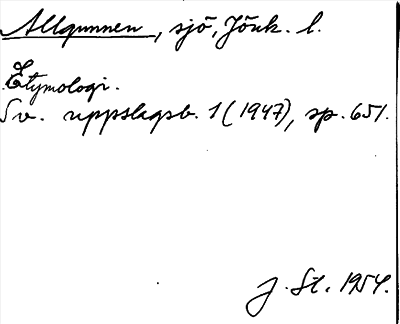 Allgunnen, sjö, Jönk. l.
Etymologi.
Sv. uppslagsb. 1 (1947), sp. 651.
J. St. 1954.